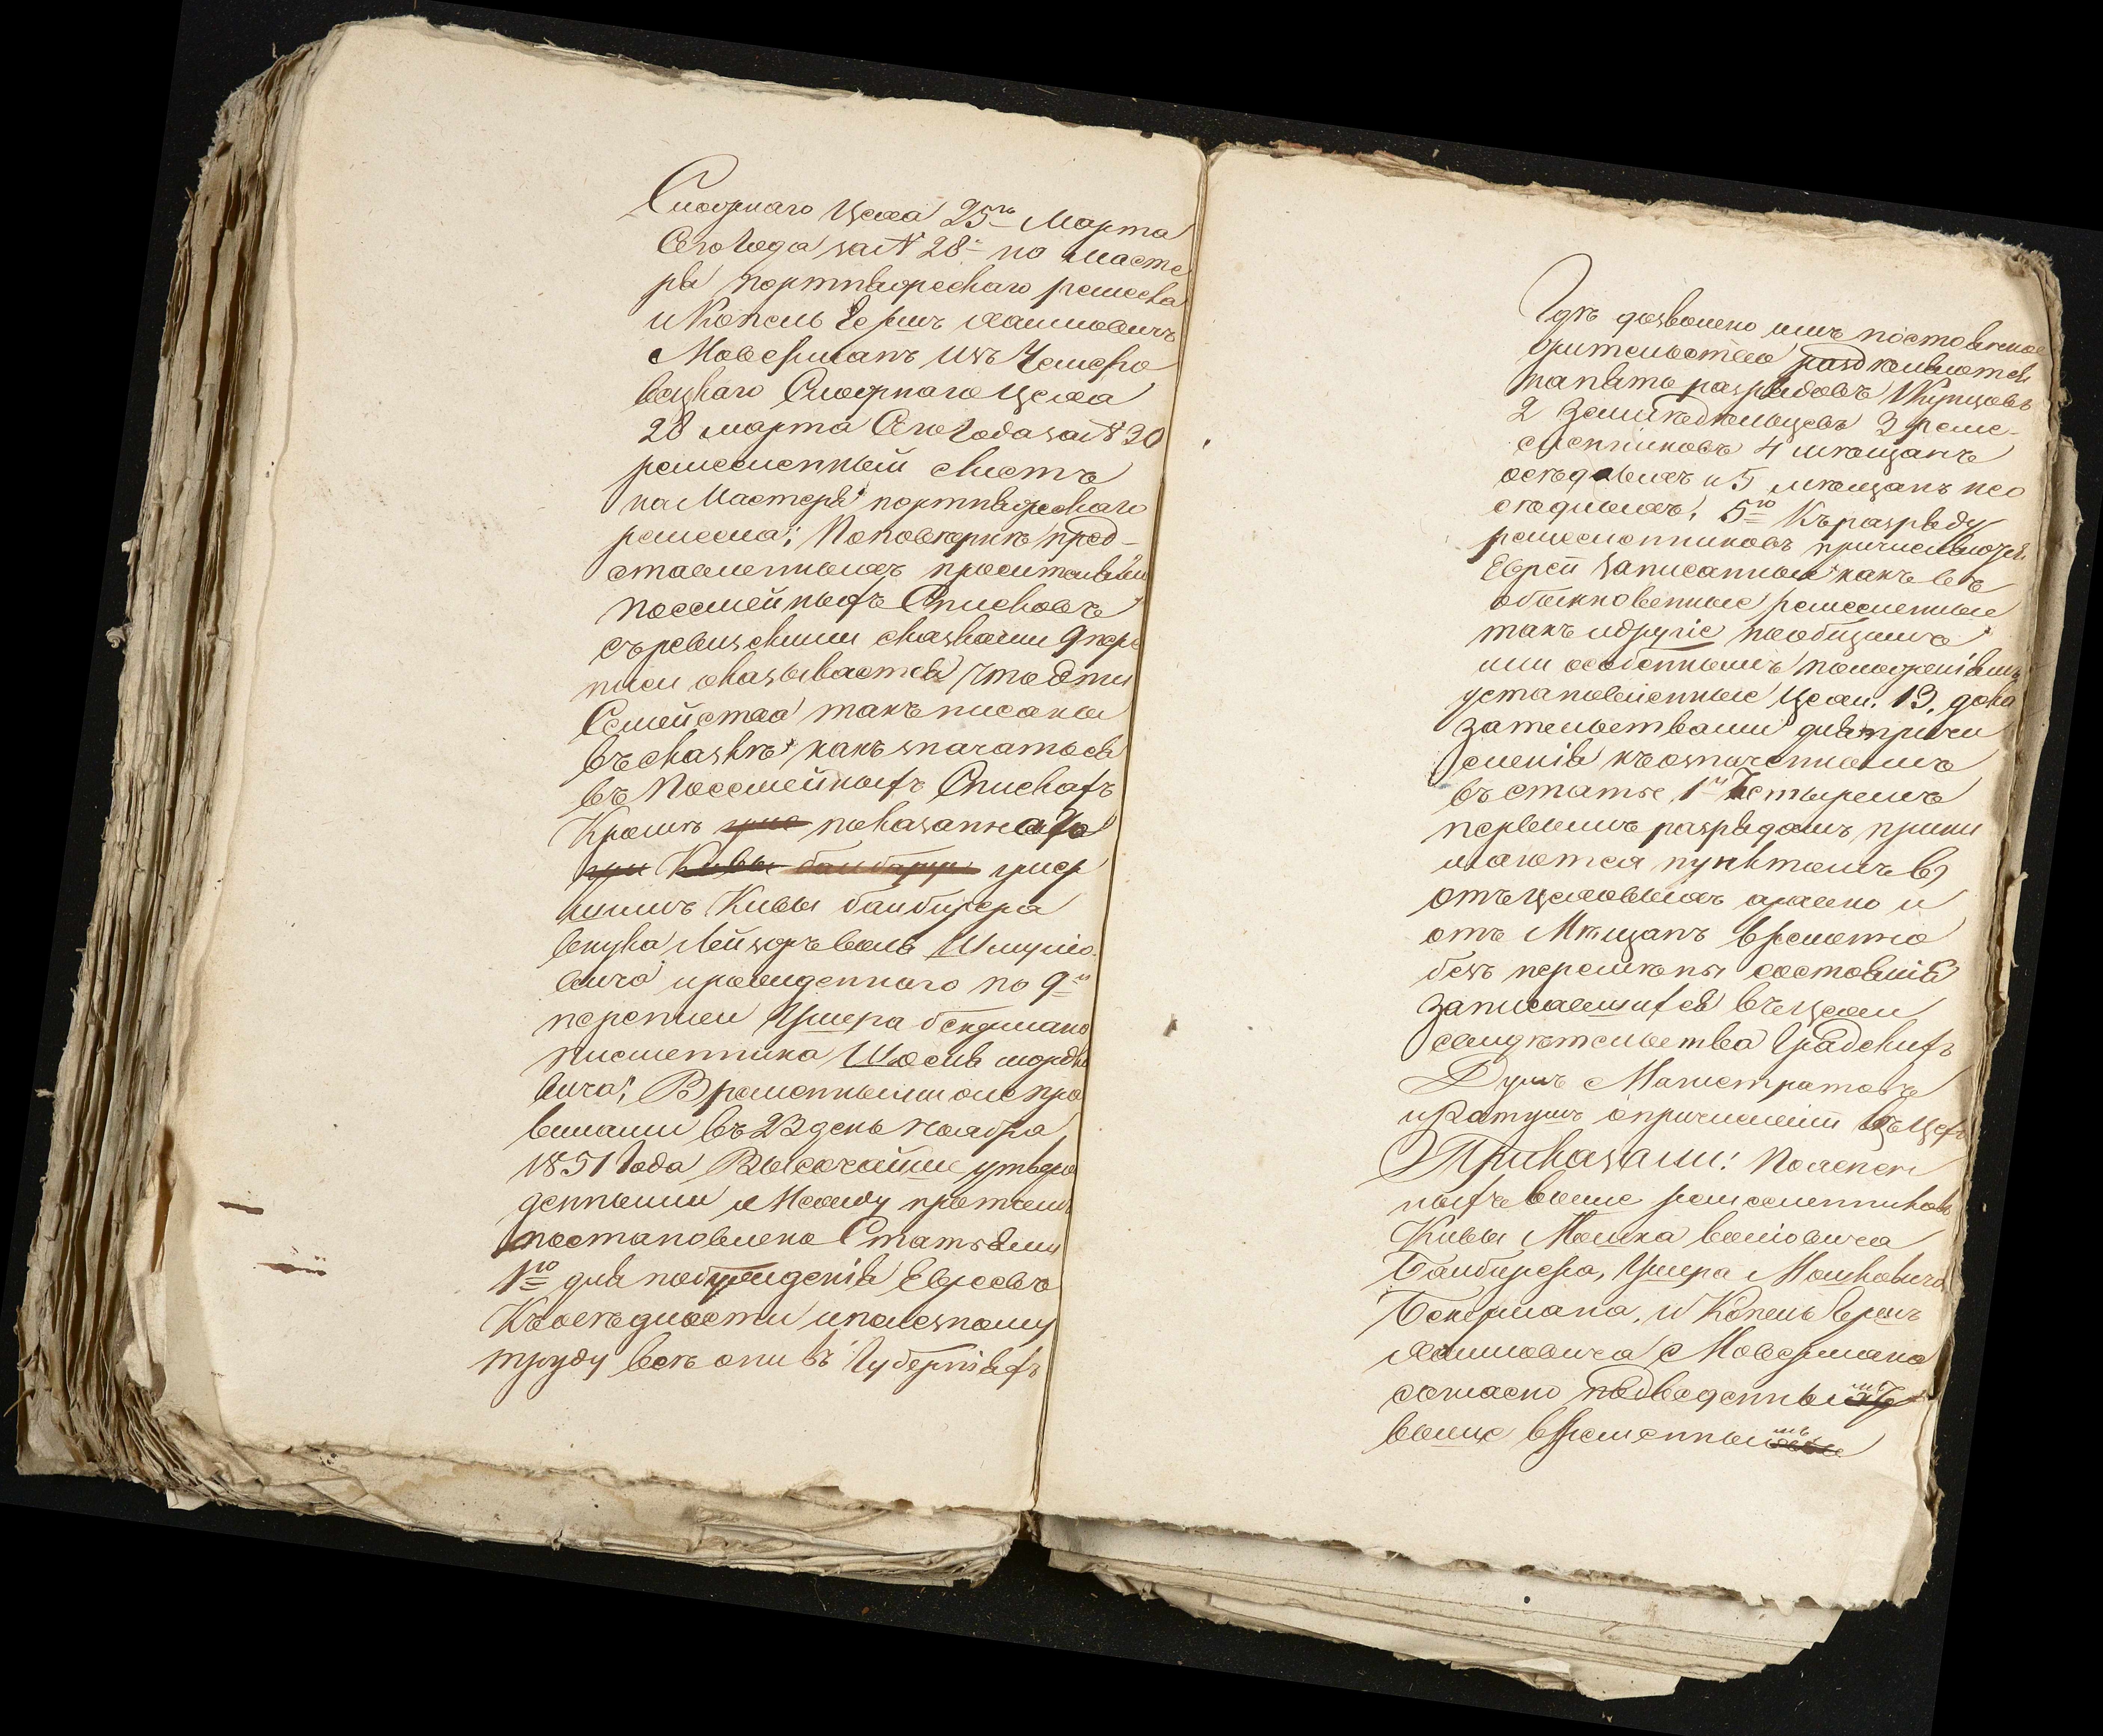 Сложнаго Цеха 25го Марта
Сего Года за N 28. на масте
ра портняжескаго ремесла
и Копель Герш Хаимовичъ
Мовсерманъ изъ Чемеро
вецкаго Сложнаго цеха
28 марта Сего Года за N 30
ремесленный листъ
на Мастера портняжескаго
ремесла; По поверкѣ пред-
ставленныхъ просителями
посемейныхъ Списковъ
съ ревизскими сказками 9 пере
писи оказывается что эти
Семейства такъ писаны
въ сказкѣ какъ значатся
въ Посемейныхъ Спискахъ
Кромѣ показаннаго
умер
шимъ Кивы
внука Лейзоръ Вель Шмулио
вича и проведеннаго по 9й
переписи Ушера
племянника Иосiя мордко
вича; Временными же пра
вилами въ 23 день Ноября
1851 Года Высочайше утверж
денными между протчимъ
постановлено Статьями
1ю для побуждения Евреевъ
Къ осѣдлости и полезному
труду всѣ они въ Губернiяхъ
Гдѣ дозволено имъ постоянное
жительство раздѣляются
на пять разрядовъ 1 Купцовъ
2 Земледѣльцевъ 3 реме-
сленниковъ 4 мѣщанъ
осѣдлыхъ и 5 мѣщанъ нео
сѣдлыхъ, 5ю Къ разряду
ремесленниковъ причисляются
Евреи записанные какъ въ
обыкновенные ремесленные
такъ и другiе по общимъ
или особеннымъ положенiямъ
установленные цехи. 13. дока
зательствами для причи
сленiя къ означеннымъ
въ статьѣ 1й Четыремъ
первымъ разрядамъ прини
маются пунктомъ в)
отъ цеховыхъ а равно и
отъ Мѣщанъ временно
безъ перемѣны состоянiя
записавшихся въ цехи
свидѣтельства Градскихъ
Думъ Магистратовъ
и Ратушъ о причисленiи въ цехъ
Приказали: Поясненныхъ выше ремесленниковъ
Кивы Мошка Велiовича
Банбурера, Ушера Мошковича
Бекермана, и Копель Герш
Хаимовича Мовсермана
согласно подведеннымъ
выше временнымъ